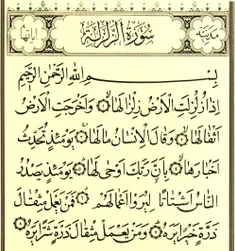 مدنية سورة الزلزلة اياتها
بِسْمِ اللهِ الرَّحْمٰنِ الرَّحِيمِ
اِذَا زُلْزِلَتِ الْاَرْضُ زِلْزَالَهَا ۝ وَاَخْرَجَتِ الْاَرْضُ
اَثْقَالَهَا ۝ وَقَالَ الْاِنْسَانُ مَالَهَا ۝ يَوْمَئِذٍ تُحَدِّثُ
اَخْبَارَهَا ۝ بِاَنَّ رَبَّكَ اَوْحٰى لَهَا ۝ يَوْمَئِذٍ يَصْدُرُ
النَّاسُ اَشْتَاتًا لِيُرَوْا اَعْمَالَهُمْ ۝ فَمَنْ يَعْمَلْ مِثْقَالَ
ذَرَّةٍ خَيْرًا يَرَهُ ۝ وَمَنْ يَعْمَلْ مِثْقَالَ ذَرَّةٍ شَرًّا يَرَهُ ۝